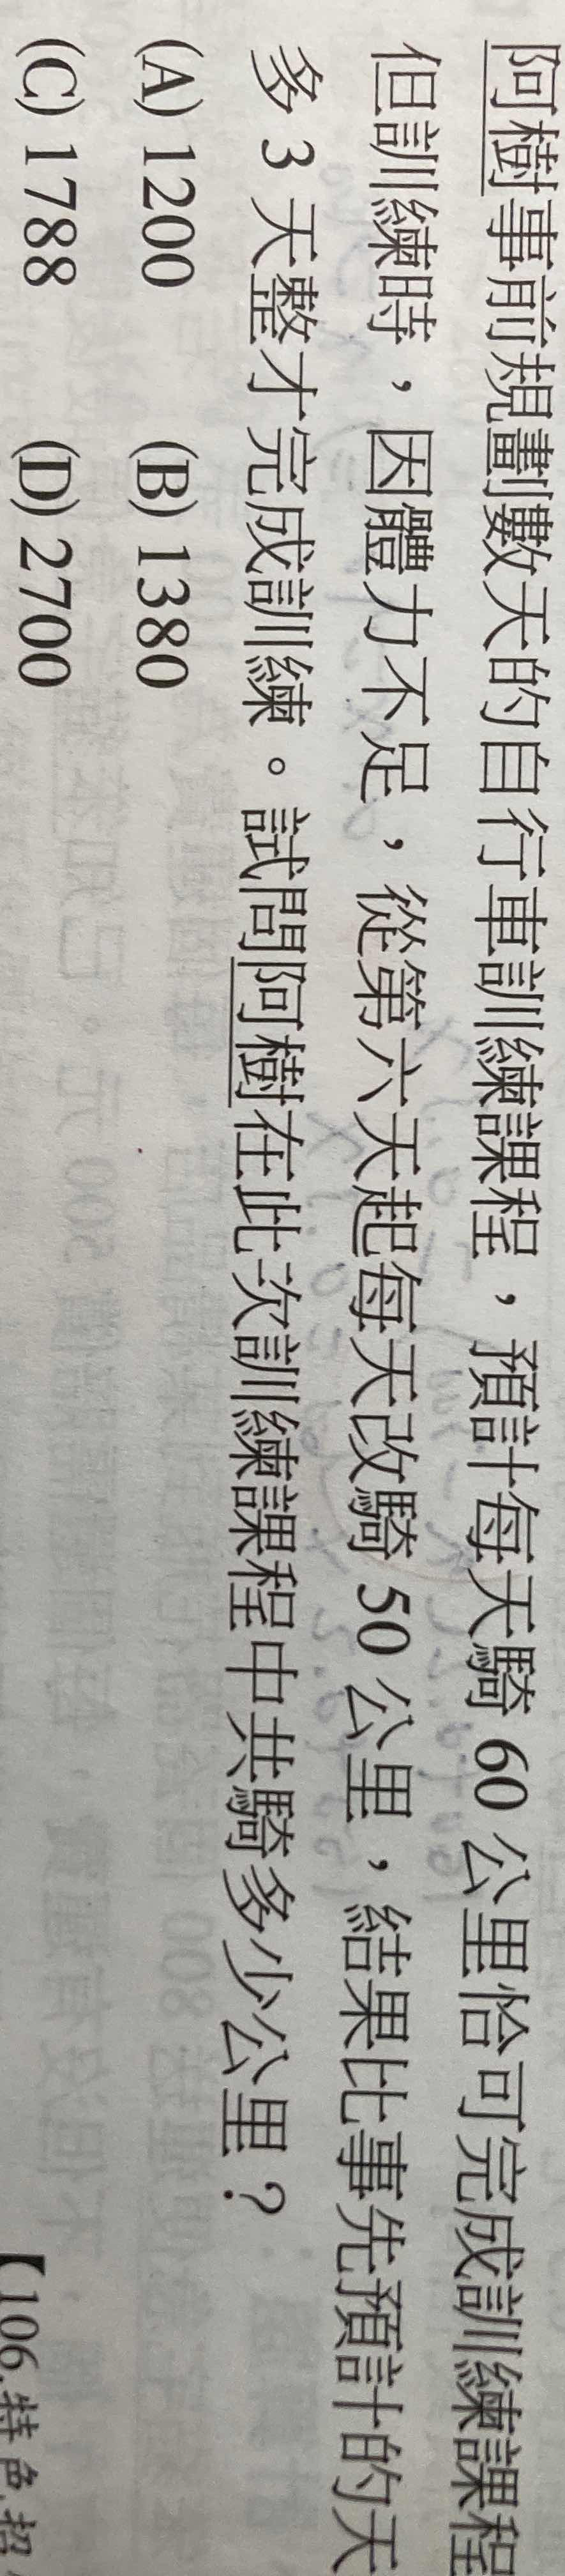 阿樹事前規劃數天的自行車訓練課程，預計每天騎 60 公里恰可完成訓練課程
但訓練時，因體力不足，從第六天起每天改騎 50 公里，結果比事先預計的天
多 3 天整才完成訓練。試問阿樹在此次訓練課程中共騎多少公里？
(A) 1200 (B) 1380
(C) 1788 (D) 2700
【106.特色招